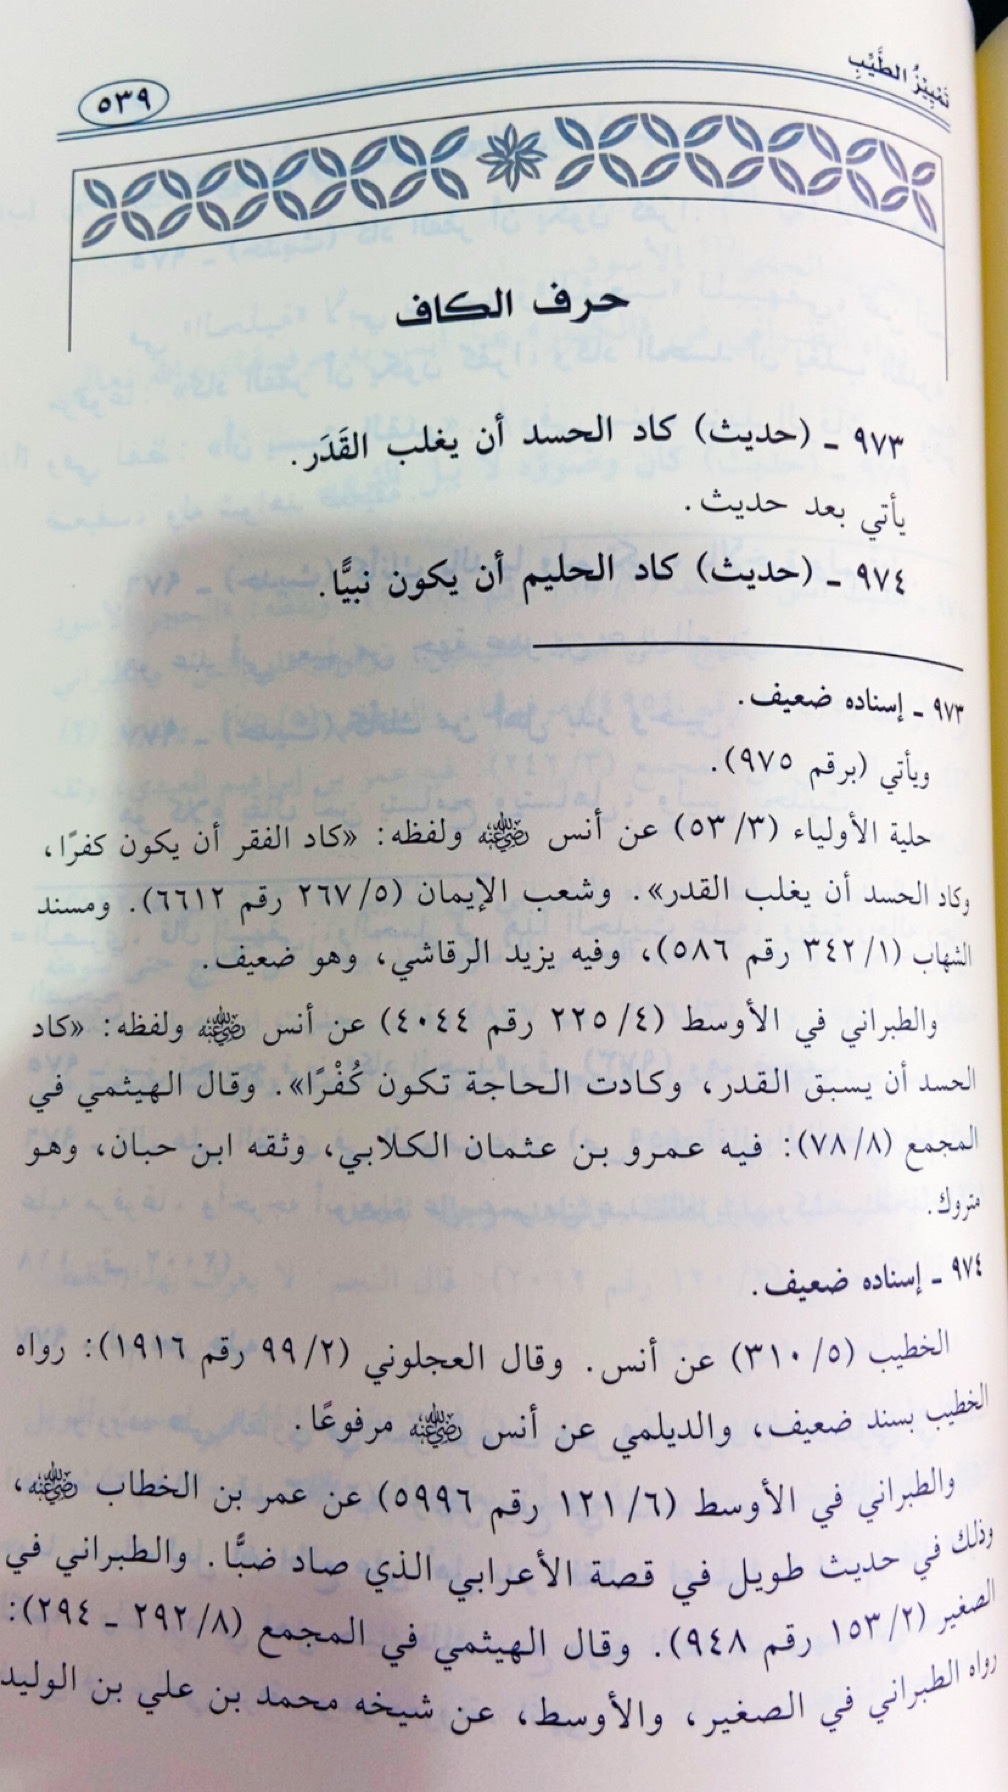 تَمْيِيْزُ الطَّيِّبِ
٥٣٩
حرف الكاف
٩٧٣ ـ (حديث) كاد الحسد أن يغلب القَدَر.
يأتي بعد حديث.
٩٧٤ ـ (حديث) كاد الحليم أن يكون نبيًّا.
٩٧٣ ـ إسناده ضعيف.
ويأتي (برقم ٩٧٥).
حلية الأولياء (٥٣/٣) عن أنس رضي الله عنه ولفظه: «كاد الفقر أن يكون كفرًا،
وكاد الحسد أن يغلب القدر». وشعب الإيمان (٢٦٧/٥ رقم ٦٦١٢). ومسند
الشهاب (٣٤٢/١ رقم ٥٨٦)، وفيه يزيد الرقاشي، وهو ضعيف.
والطبراني في الأوسط (٢٢٥/٤ رقم ٤٠٤٤) عن أنس رضي الله عنه ولفظه: «كاد
الحسد أن يسبق القدر، وكادت الحاجة تكون كُفْرًا». وقال الهيثمي في
المجمع (٧٨/٨): فيه عمرو بن عثمان الكلابي، وثقه ابن حبان، وهو
متروك.
٩٧٤ ـ إسناده ضعيف.
الخطيب (٣١٠/٥) عن أنس. وقال العجلوني (٩٩/٢ رقم ١٩١٦): رواه
الخطيب بسند ضعيف، والديلمي عن أنس رضي الله عنه مرفوعًا.
والطبراني في الأوسط (١٢١/٦ رقم ٥٩٩٦) عن عمر بن الخطاب رضي الله عنه،
وذلك في حديث طويل في قصة الأعرابي الذي صاد ضبًّا. والطبراني في
الصغير (١٥٣/٢ رقم ٩٤٨). وقال الهيثمي في المجمع (٢٩٢/٨ ـ ٢٩٤):
رواه الطبراني في الصغير، والأوسط، عن شيخه محمد بن علي بن الوليد